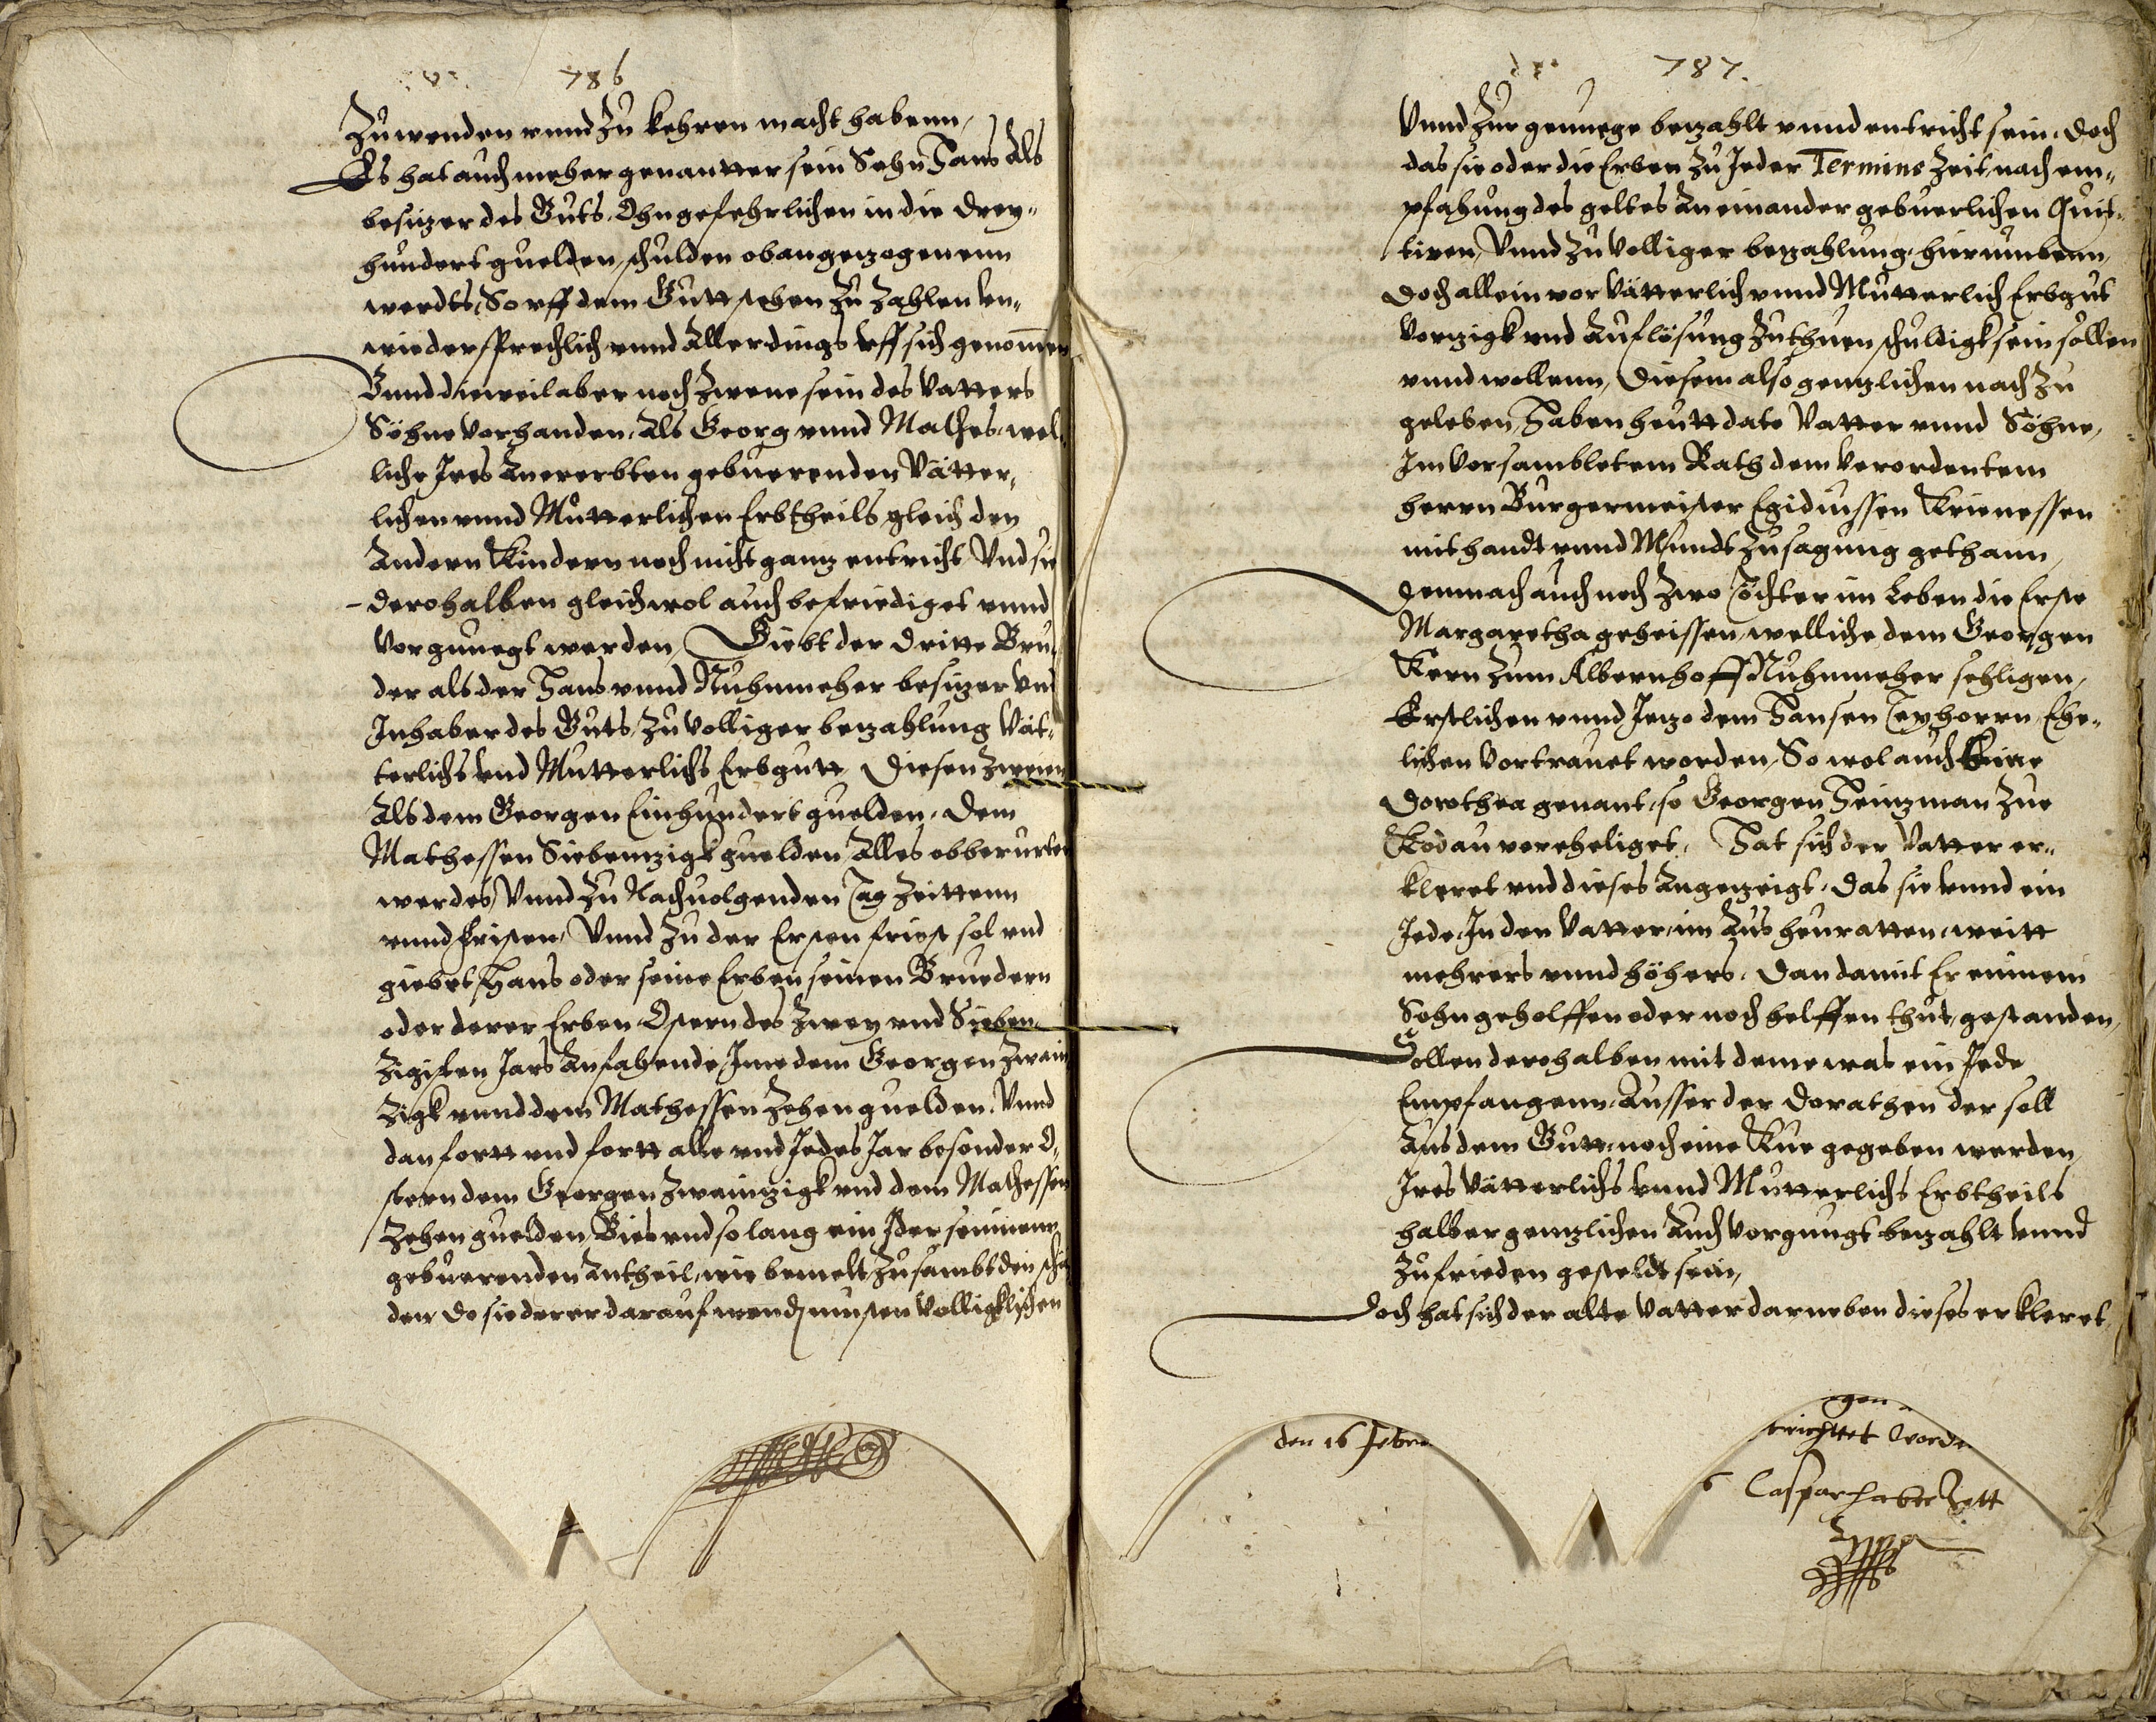 786
Zuwenden vnnd Zu kehren macht habenn,
Es hat auch meher genantter sein Sohn Hans Als
besitzer des Guts, Ohngefehrlichen in die drey„
hundert guelden, schulden obangezogenenn
werdts, So vff dem Gutt stehen Zu Zahlen vn„
wiedersprechlich vnnd Allerdings vff sich genommen
Vnnd dieweil aber noch Zwene sein des Vatters
Söhne vorhanden, Als Georg vnnd Mathes, wel„
liche Ires Anererbten gebuerenden Vätter„
lichen vnnd Mutterlichen Erbtheils, gleich den
Andern Kindern noch nicht gantz entricht Vnd sie
derohalben gleichwol auch befriediget vnnd
Vorgnuegt werden, Giebt der dritte Bru„
der als der Hans vnnd Nuhnmeher besitzer vnd
Inhaber des Guts, Zu volliger bezahlung Vät„
terlichs vnd Mutterlichs Erbgutt, Diesen Zweien
Als dem Georgen Einhundert guelden, Dem
Mathessen Siebentzigk guelden Alles obberurten
werdes, Vnnd Zu Nachuolgenden Tag Zeittenn
vnnd Fristen, Vnnd Zu der Ersten frist sol vnd
giebet Hans oder seine Erben seinen Bruedern
oder derer Erben Ostern des Zwey vnd Sieben„
Zigisten Jars Anfahende, Ime dem Georgen Zwain„
Zigk vnnd dem Mathessen Zehen guelden, Vnnd
dan fortt vnd fortt alle vnd Jedes Jar besonder O„
stern dem Georgen Zwaintzigk vnd dem Mathessen
Zehen guelden, Bies vnd so lang ein Jder seinenn
gebuerenden Antheil, wie bemelt, Zusambt den schä„
den, Do sie derer darauf wenden musten Volligklichen
787.
Vnnd Zur genuege bezahlt vnnd entricht sein, Doch
das sie oder die Erben Zu Jeder Termins Zeit, nach em„
pfahung des geltes An einander gebuerlichen Quit„
tiren, Vnnd Zu volliger bezahlung, hierumbenn,
Doch allein vor Vätterlich vnnd Mutterlich Erbgut
Vorzigk vnd Auflösung Zuthuen schuldigk sein sollen
vnnd wollenn, Diesem also gentzlichen nach Zu
geleben, Haben heutt dato Vatter vnnd Söhne,
Im Vorsambletem Rath dem Verordentem
herrn Burgermeister Egidiussen Krienessen
mit handt vnnd Mundt Zusagung gethann,
Demnach auch noch Zwo Töchter im Leben die Erste
Margaretha geheissen, welliche dem Georgen
Kern Zum Albernhoff Nuhnmeher sehligen,
Erstlichen vnnd Jetzo dem Hansen Teyhorrn Ehe„
lichen Vortrauet worden, So wol auch Eine
Dorothea genant, so Georgen Heintzman Zue
Kodau vereheliget, Hat sich der Vatter er„
kleret vnd dieses Angezeigt, Das sie vnnd ein
Jede, In der Vatter, im Aus heuratten, weitt
mehrers vnnd höhers, Dan damit Er einem
Sohn geholffen oder noch helffen thut, gestanden,
Sollen derohalben mit deme was ein Jede
Empfangenn, Ausser der Dorathen der soll
Aus dem Gutt, noch eine Kue gegeben werden,
Ires Vätterlichs vnnd Mutterlichs Erbtheils
halber gentzlichen Auch Vorgnugt bezahlt vnnd
Zufrieden gesteldt sein,
Doch hat sich der alte Vatter darneben dieses erkleret,
den 16 Febru
gen
trichttet word
6 Caspar